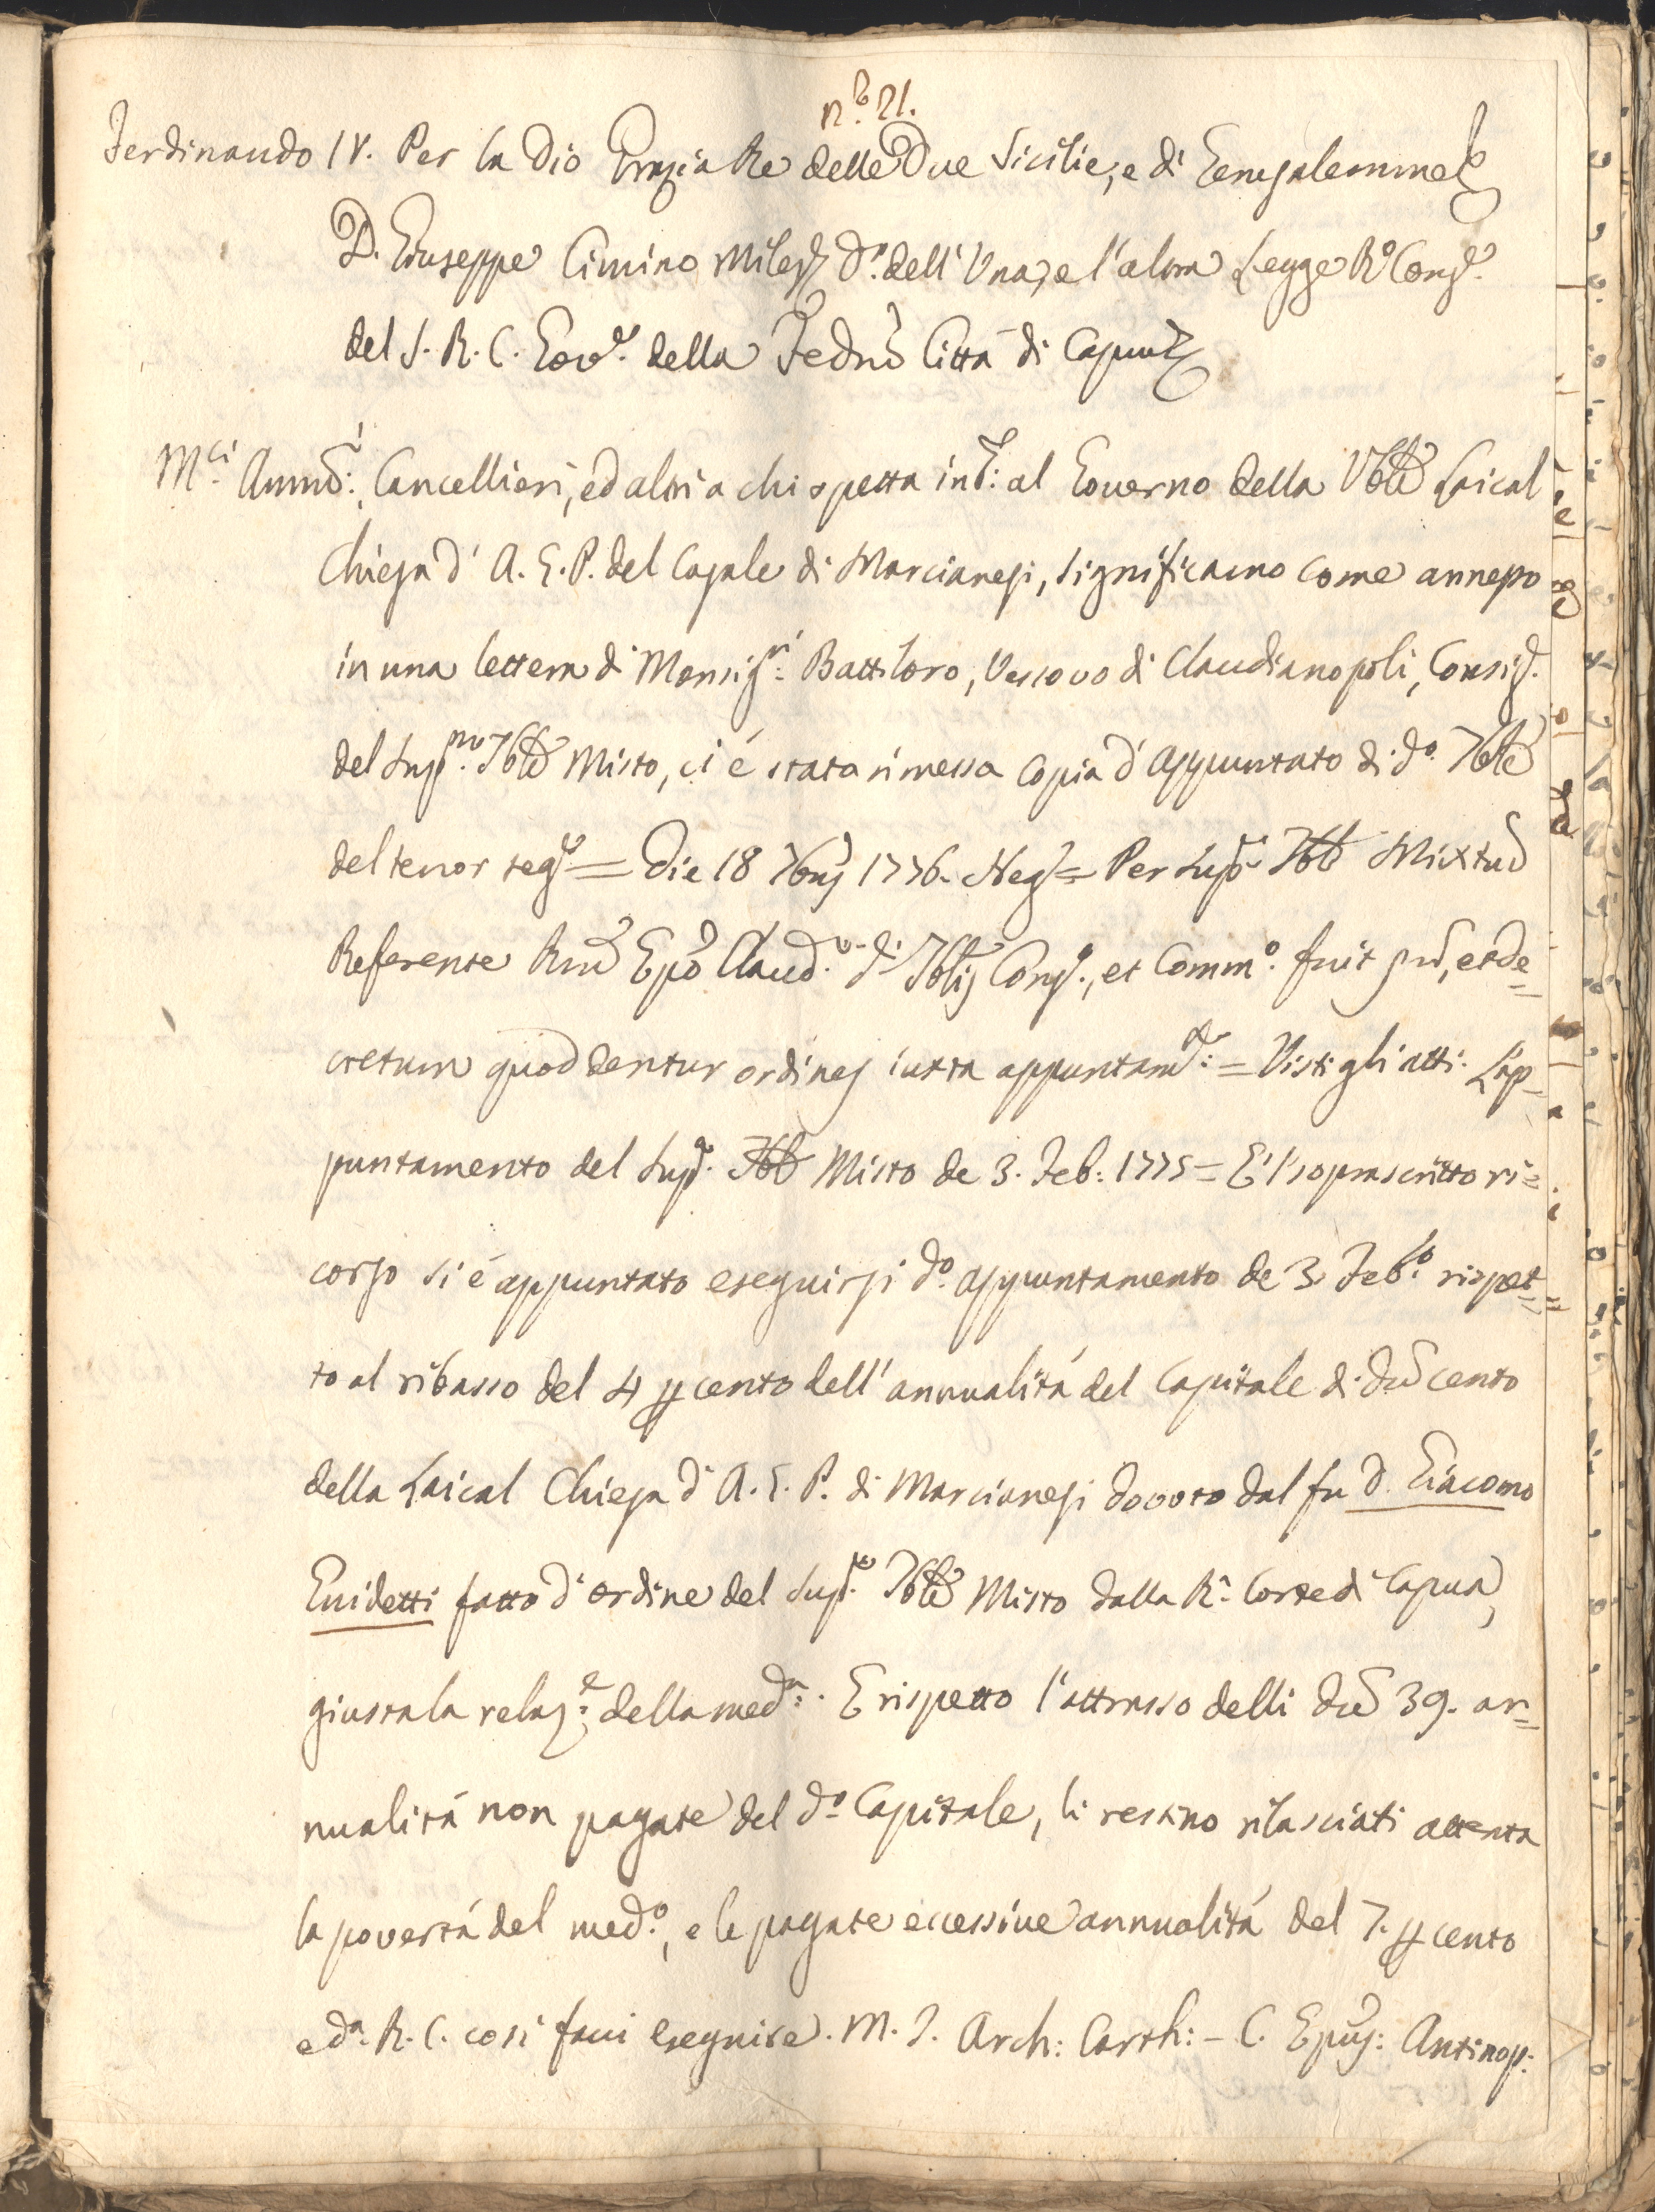 n.º 21.
Ferdinando IV. Per la Dio Grazia Re delle Due Sicilie, e di Gerusalemme
D. Giuseppe Cimino Miles D.r dell'Una, e l'altra Legge R.º Cons.º
del S. R. C. Gov.re della Fedma Città di Capua
M.ci Amm.ri: Cancellieri, ed altri a chi spetta int.º: al Governo della Vble Laical
Chiesa d'A. G. P. del Casale di Marcianesi, significamo come annesso
in una lettera di Monsig.r: Battiloro, Vescovo di Claudianopoli, Consig.
del Sup.mo Tble Misto, ci è stata rimessa copia d'appuntato di d.º Tble
del tenor seg.e = Die 18 7bris 1776. Neap. = Per Sup. Tbl Mixtum
Referente Rmo Epo Claud. d.i Tblis Cons.º, et Comm.º fuit p̃m, et de=
cretum quod dentur ordines iuxta appuntam.: = Visti gli atti. L'ap=
puntamento del Sup.º Tbl Misto de 3. Feb: 1775 = E'l soprascritto ri=
corso si è appuntato eseguirsi d.º appuntamento de 3 Feb.º rispet=
to al ribasso del 4 p cento dell'annualità del capitale di d.i cento
della Laical Chiesa d'A. G. P. di Marcianesi dovuto dal fu D. Giacomo
Guidetti fatto d'ordine del Sup.mo Tble Misto dalla R.l Corte di Capua,
giusta la relaz.e: della med.a: E rispetto l'attrasso delli d.i 39. an=
nualità non pagate del d.º Capitale, li restino rilasciati attenta
la povertà del med.º, e le pagate eccessive annualità del 7. p cento
e d.a R. C. così facci eseguire. M. J. Arch: Carth: - C. Epus: Antinop: